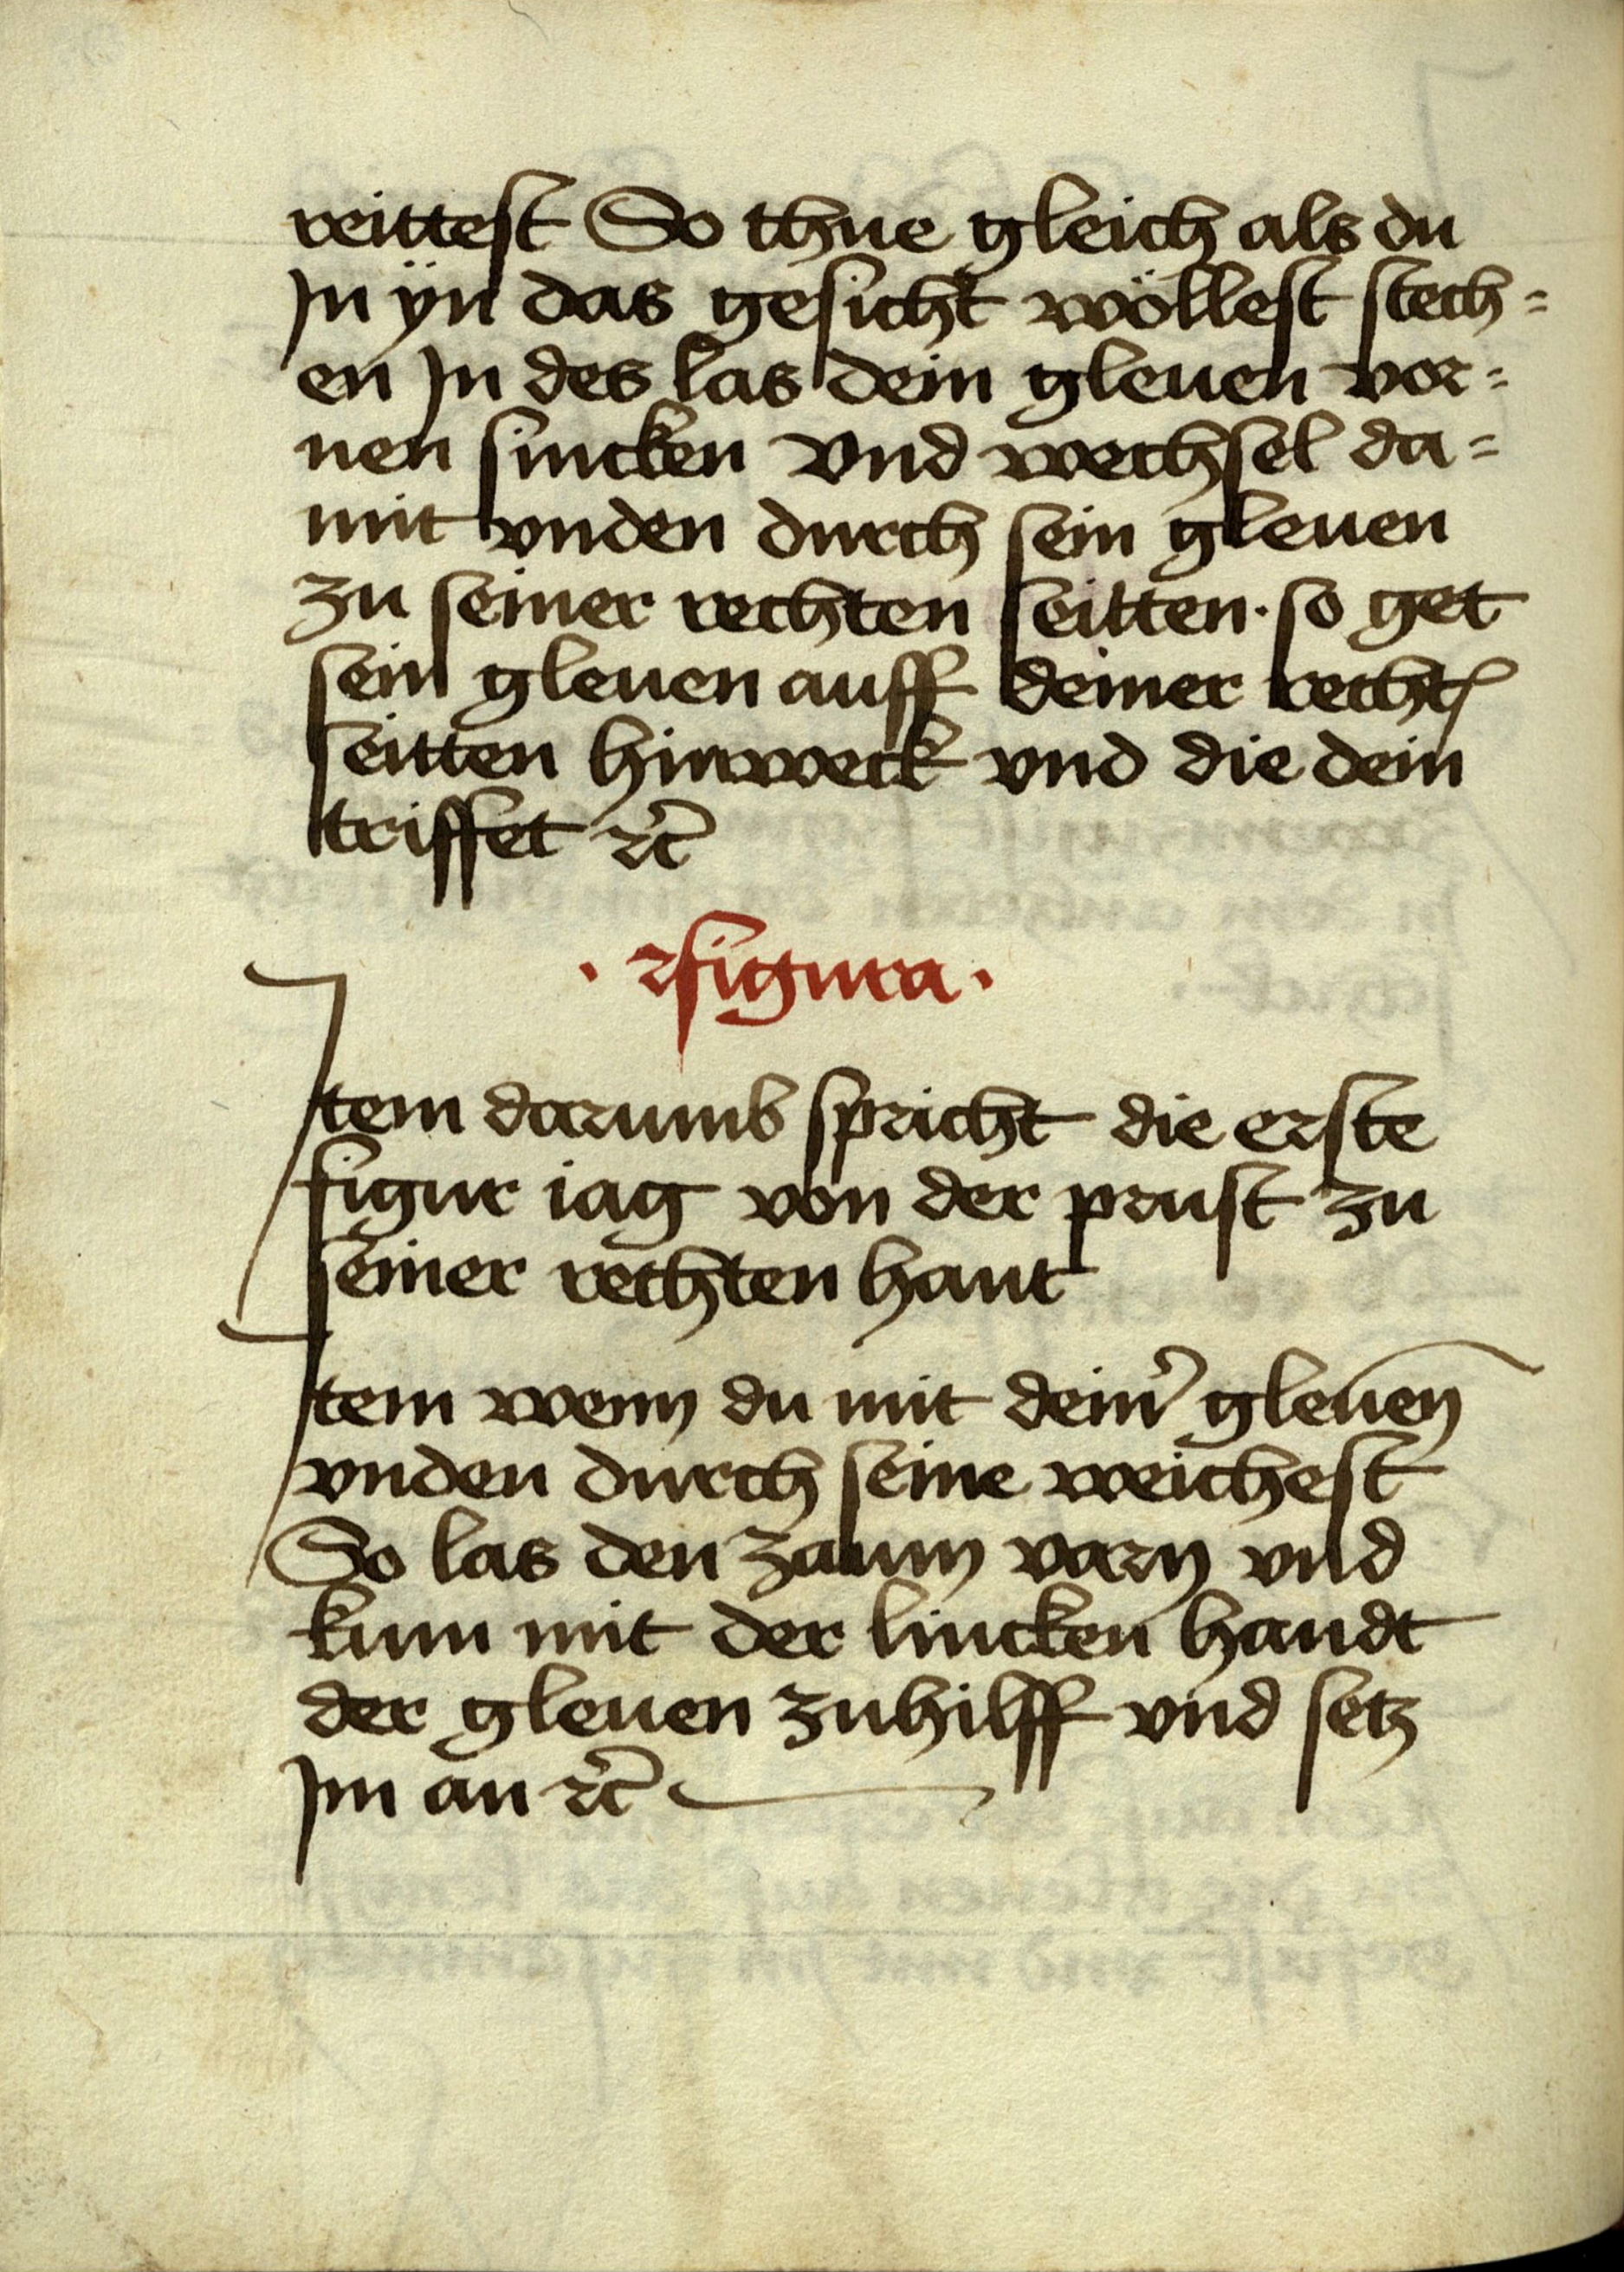 reittest So thue gleich als du
Jn ÿn das gesicht wöllest stech=
en Jn des las dein gleuen vor=
nen sincken Vnd wechsel da=
mit vnden durch sein gleuen
zu seiner rechten seitten· so get
sein gleuen auff deiner rechtꝭ
seitten hinweck vnd die dein
triffet ꝛc̃
· figura ·
Jtem darumb spricht die erste
figur iag von der prust zu
seiner rechten hant
Jtem wenn du mit deinˀ gleuen̄
vnden durch seine weichest
So las den zaum varn vnd
kum mit der lincken handt
der gleuen zuhilff vnd setz
Jm an ꝛc̃